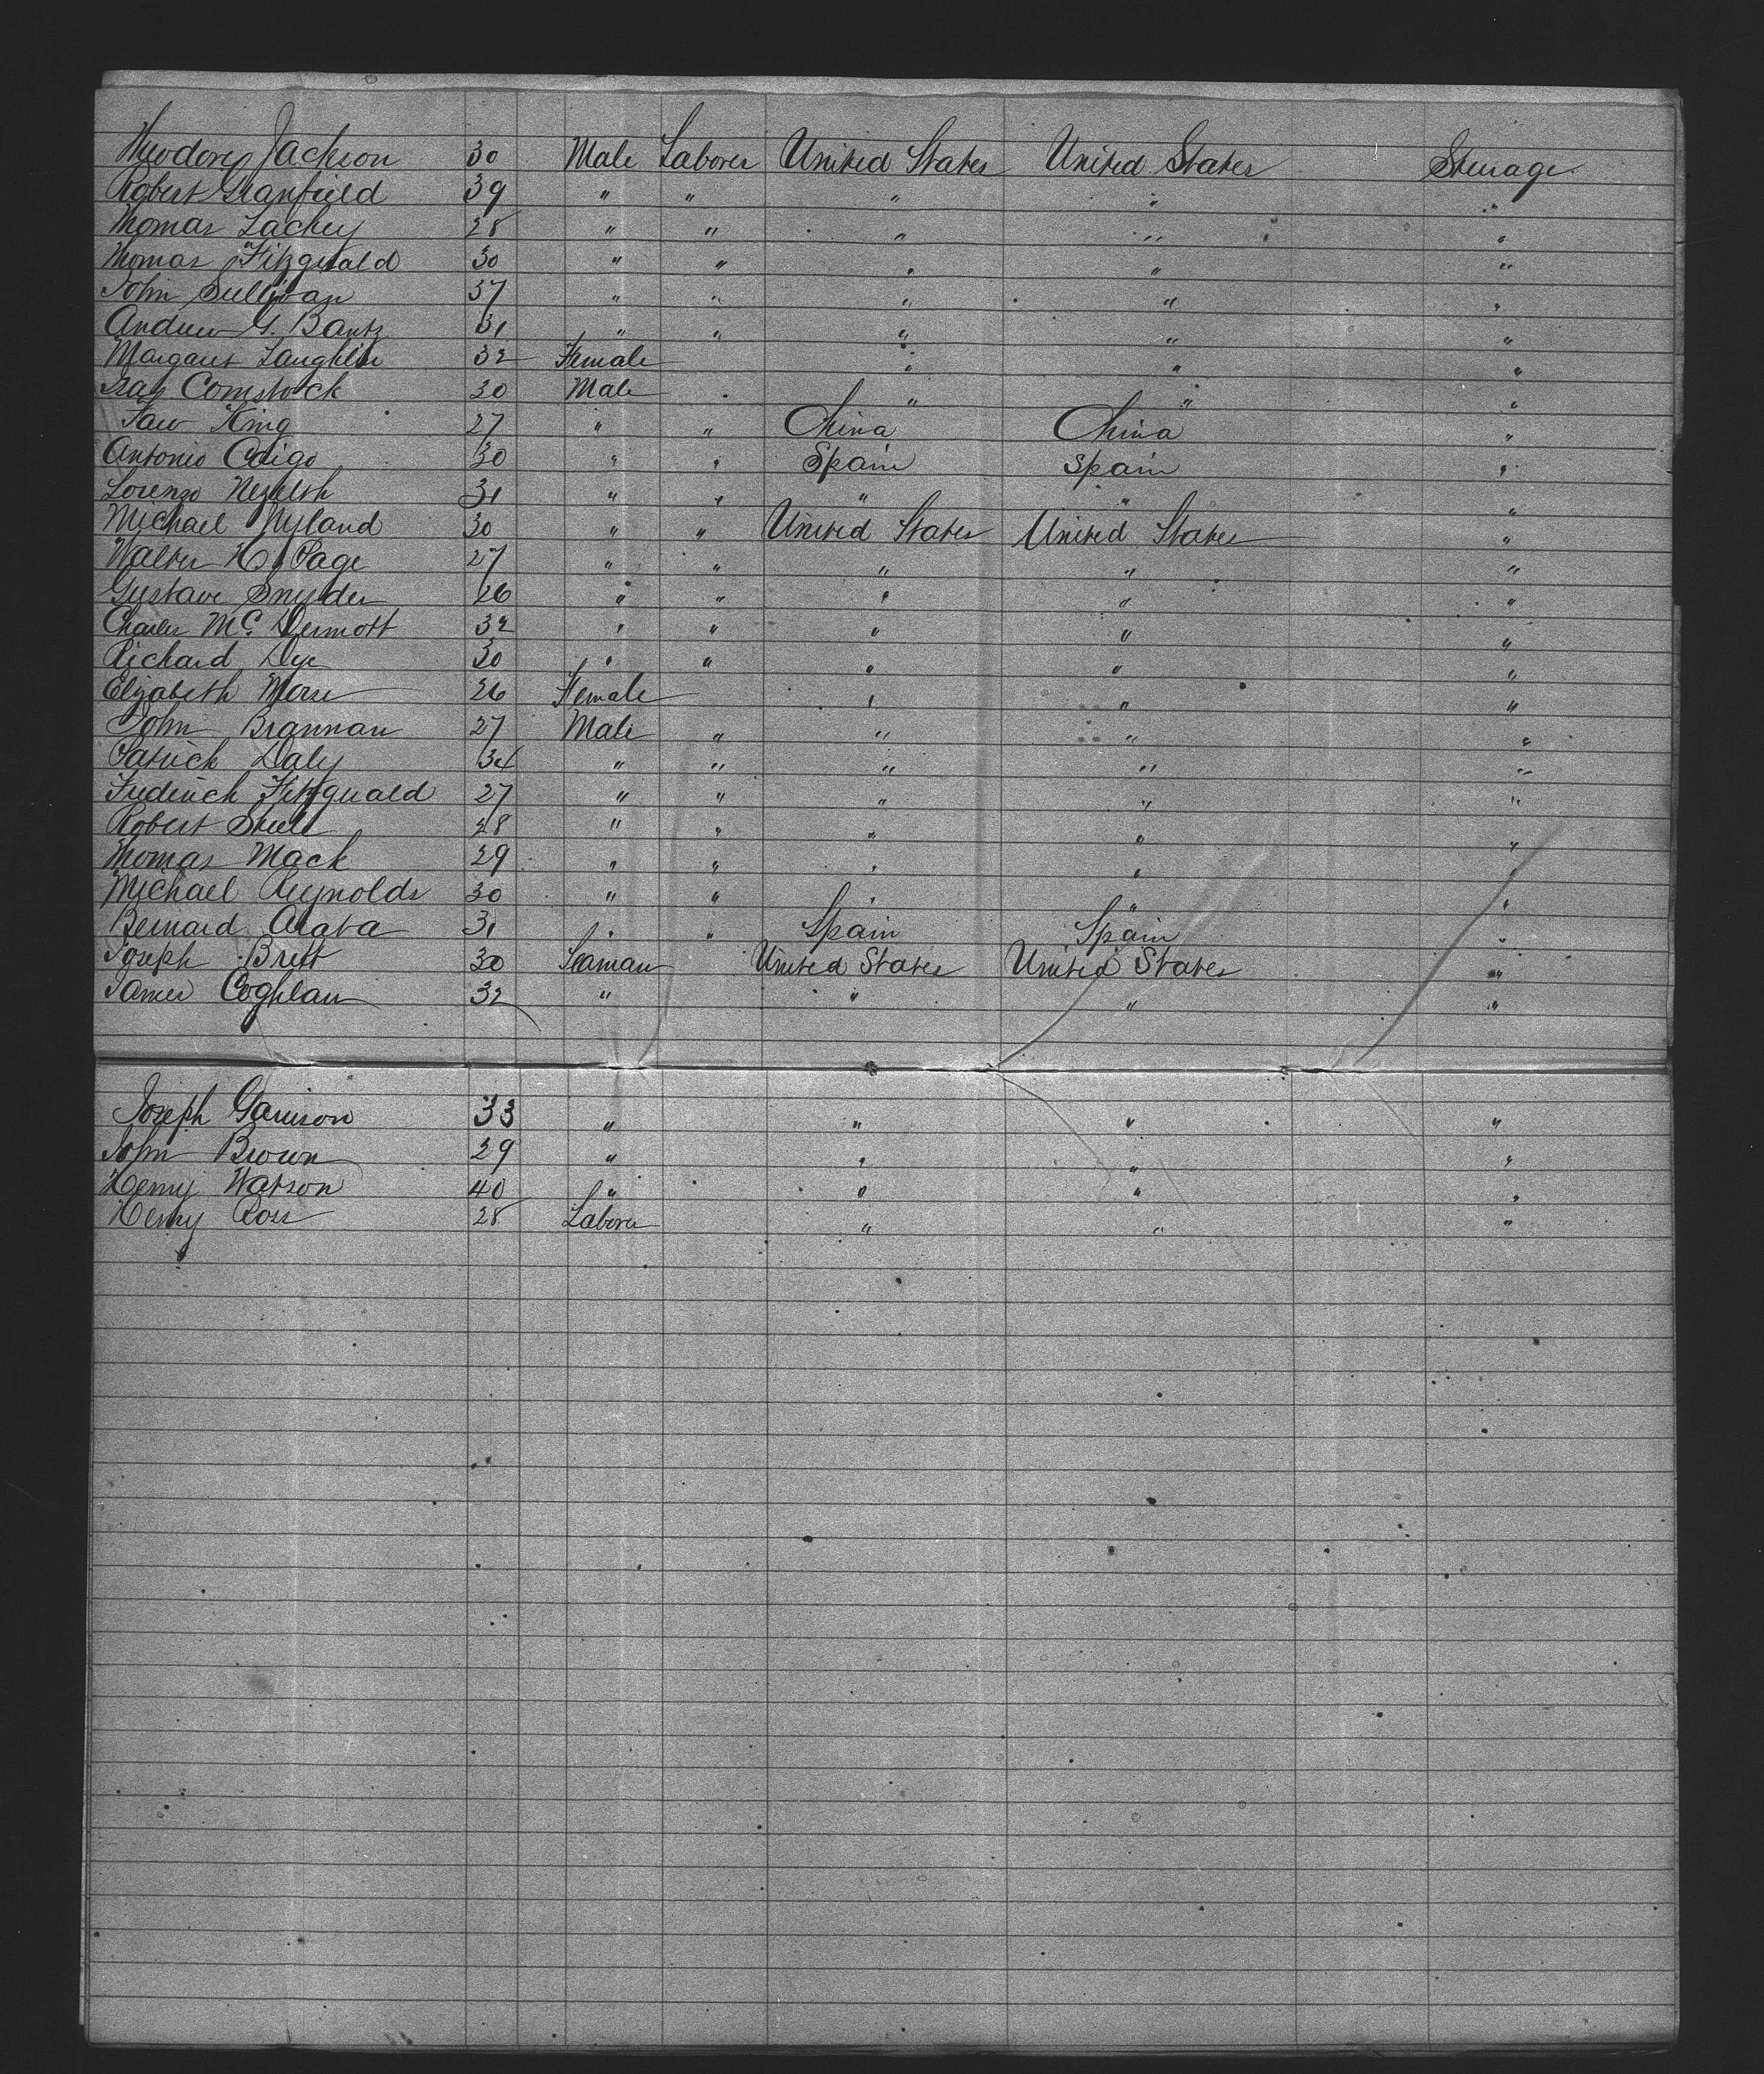 Theodore Jackson 30 Male Laborer United States United States Steerage
Robert Granfield 39 " " " " "
Thomas Lackey 28 " " " " "
Thomas Fitzgerald 30 " " " " "
John Sullivan 37 " " " " "
Andrew G. Bantz 31 " " " " "
Margaret Laughlin 32 Female " " "
Comstock 30 Male " " "
King 27 " " China China "
Antonio 30 " " Spain Spain "
Lorenzo 31 " " " " "
Michael Hyland 30 " " United States United States "
Walter H. Page 27 " " " " "
Gustave Snyder 26 " " " " "
Charles McDermott 32 " " " " "
Richard Dye 30 " " " " "
Elizabeth Morse 26 Female " " "
John Brannan 27 Male " " " "
Patrick Daly 34 " " " " "
Frederick Fitzgerald 27 " " " " "
Robert Steele 28 " " " " "
Thomas Mack 29 " " " " "
Michael Reynolds 30 " " " " "
Bernard Arata 31 " " Spain Spain "
Joseph Brett 30 Seaman United States United States "
James Coghlan 32 " " " "
Joseph Garrison 33 " " " "
John Brown 29 " " " "
Henry Watson 40 " " " "
Henry Ross 28 Laborer " " "